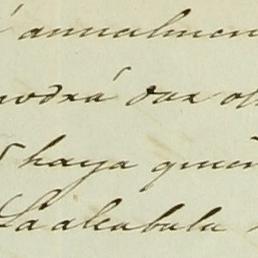 anualmen
podrá dar o
haya quien
La alcabala